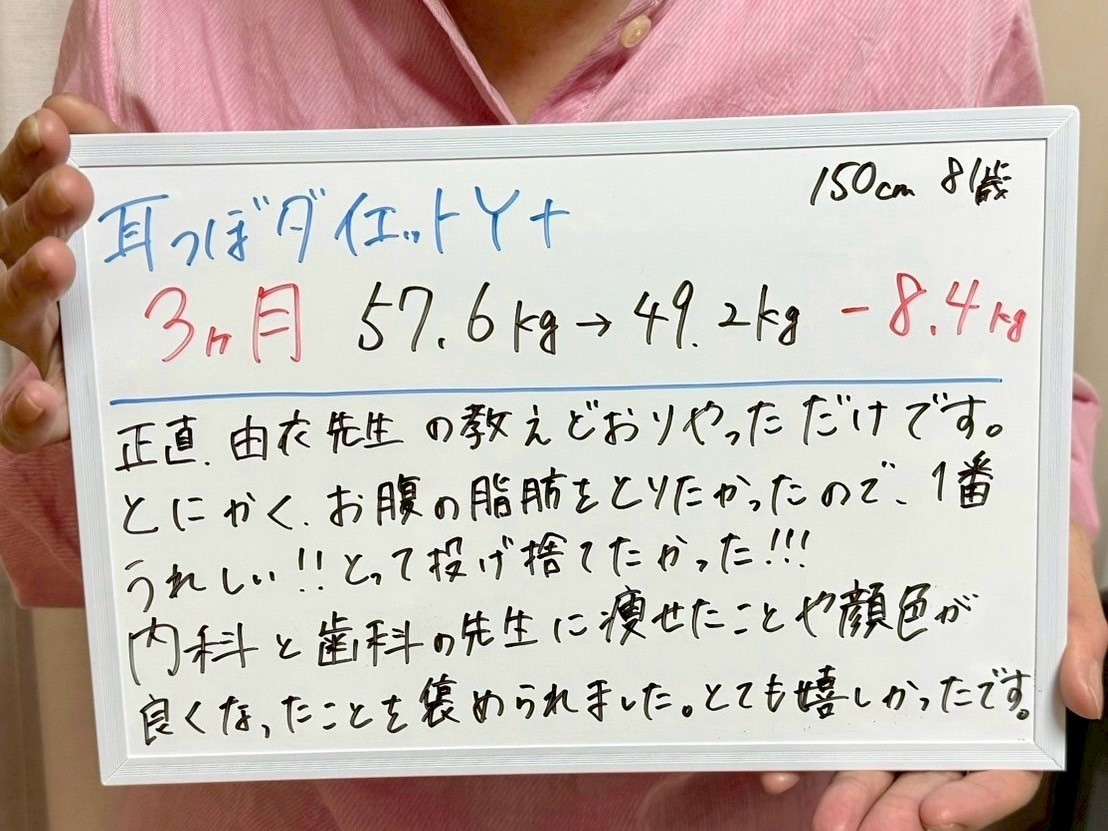 150cm 81歳
耳つぼダイエットY+
3ヶ月 57.6kg→49.2kg -8.4kg
正直、由衣先生の教えどおりやっただけです。
とにかく、お腹の脂肪をとりたかったので、1番
うれしい!!とって投げ捨てたかった!!!
内科と歯科の先生に痩せたことや顔色が
良くなったことを褒められました。とても嬉しかったです。